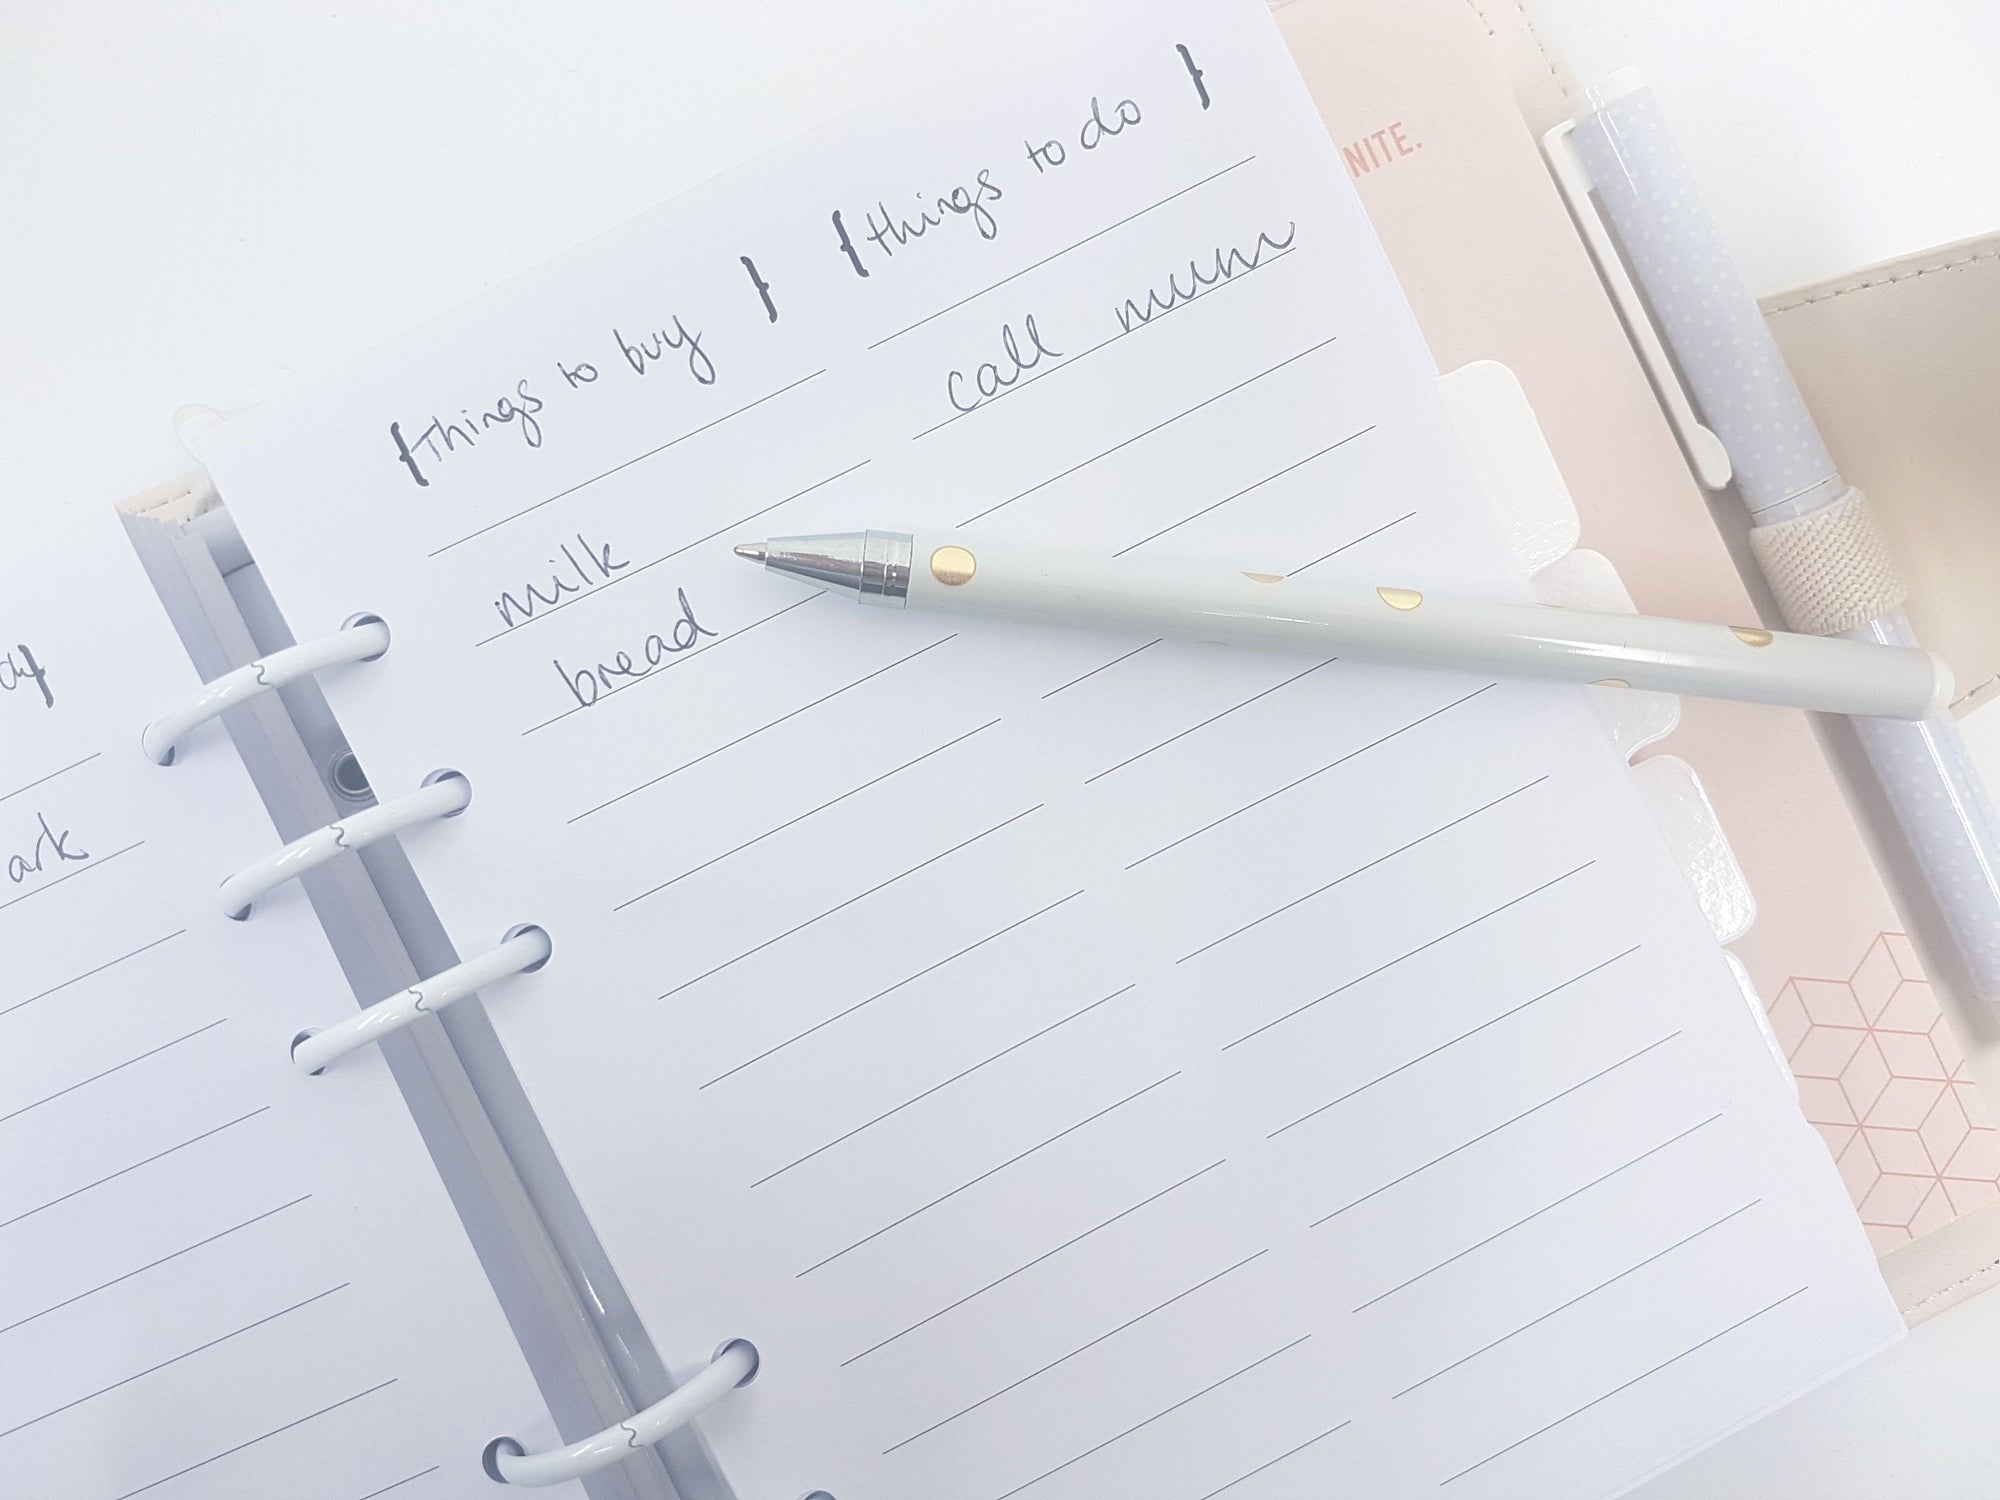 {things to buy}
milk
bread
{things to do}
call mum
NITE.
ark